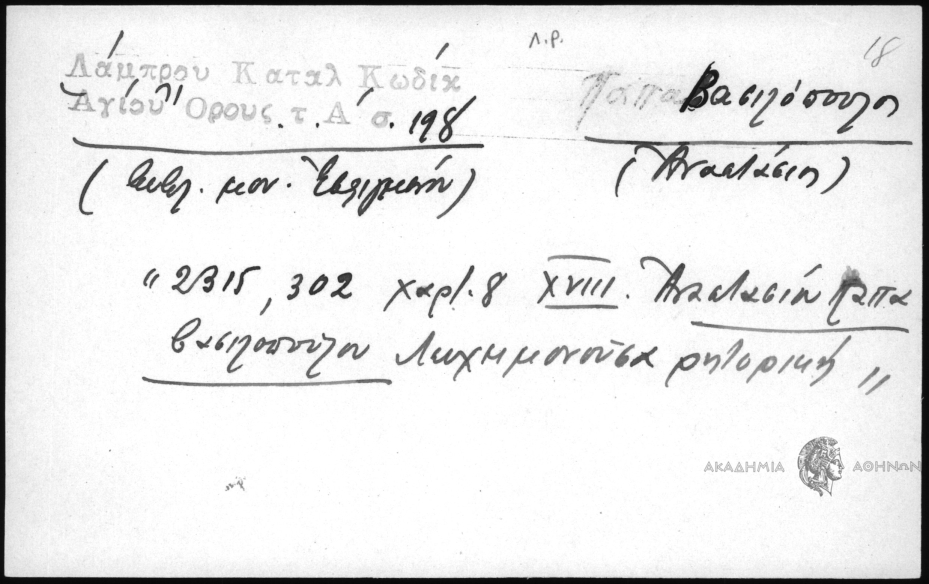 Λ.Ρ.
18
Λάμπρου Καταλ Κωδίκ
Αγίου Όρους τ. Α΄ σ. 198
Παπαβασιλόπουλος
(Βιβλ. μον. Ἐσφιγμένου)
(Ἀναστάσιος)
" 2315, 302 χαρτ. 8 XVIII. Ἀναστασίου Παπα
βασιλοπούλου Λειχημονοῦσα ρητορική "
ΑΚΑΔΗΜΙΑ ΑΘΗΝΩΝ